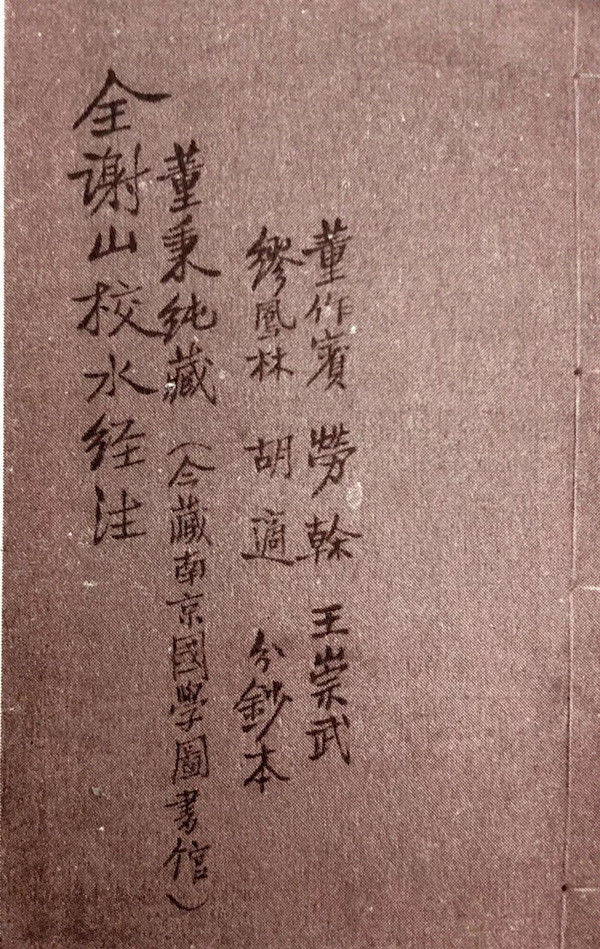 董作賓 勞榦 王崇武
繆鳳林 胡適 分鈔本
董秉純藏（今藏南京國學圖書館）
全谢山校水经注